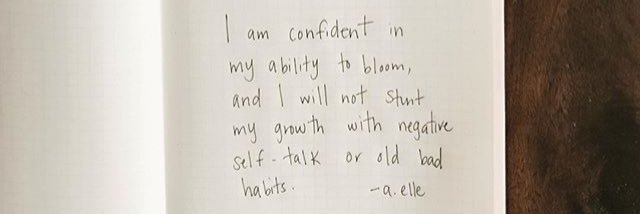 I am confident in
my ability to bloom,
and I will not stunt
my growth with negative
self-talk or old bad
habits. -a.elle